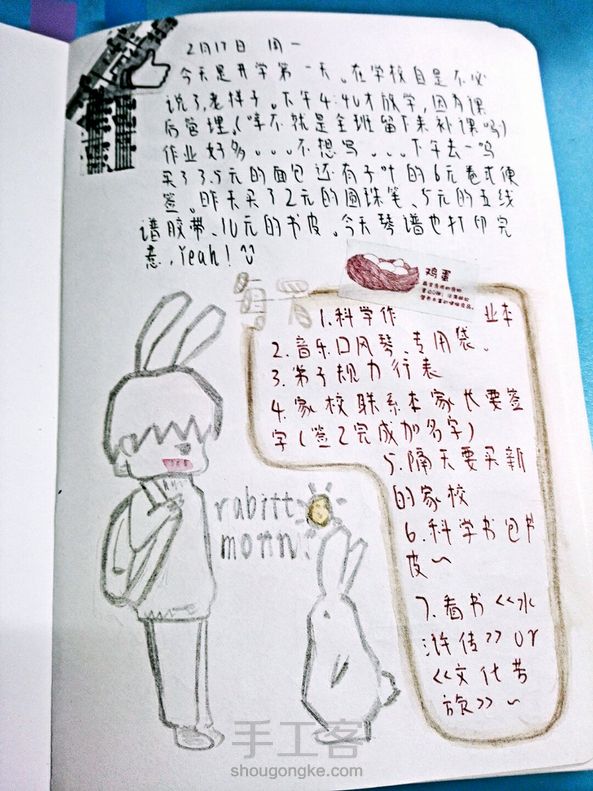 2月17日 周一
今天是开学第一天。在学校自是不必
说了,老样子。下午4:40才放学,因有课
后管理。(哼不就是全班留下来补课吗)
作业好多...不想写...下午去一鸣
买了3.5元的面包还有子叶的6元卷式便
签。昨天买了2元的圆珠笔、5元的五线
谱胶带、10元的书皮。今天琴谱也打印完
毕,Yeah!
鸡蛋
1.科学作 业本
2.音乐口风琴、专用袋、
3.弟子规力行表
4.家校联系本家长要签
字(签2完成加名字)
5.隔天要买新
的家校
6.科学书包书
皮~
7.看书《水
浒传》or
《文化苦
旅》~
rabitt
moon!
手工客
shougongke.com